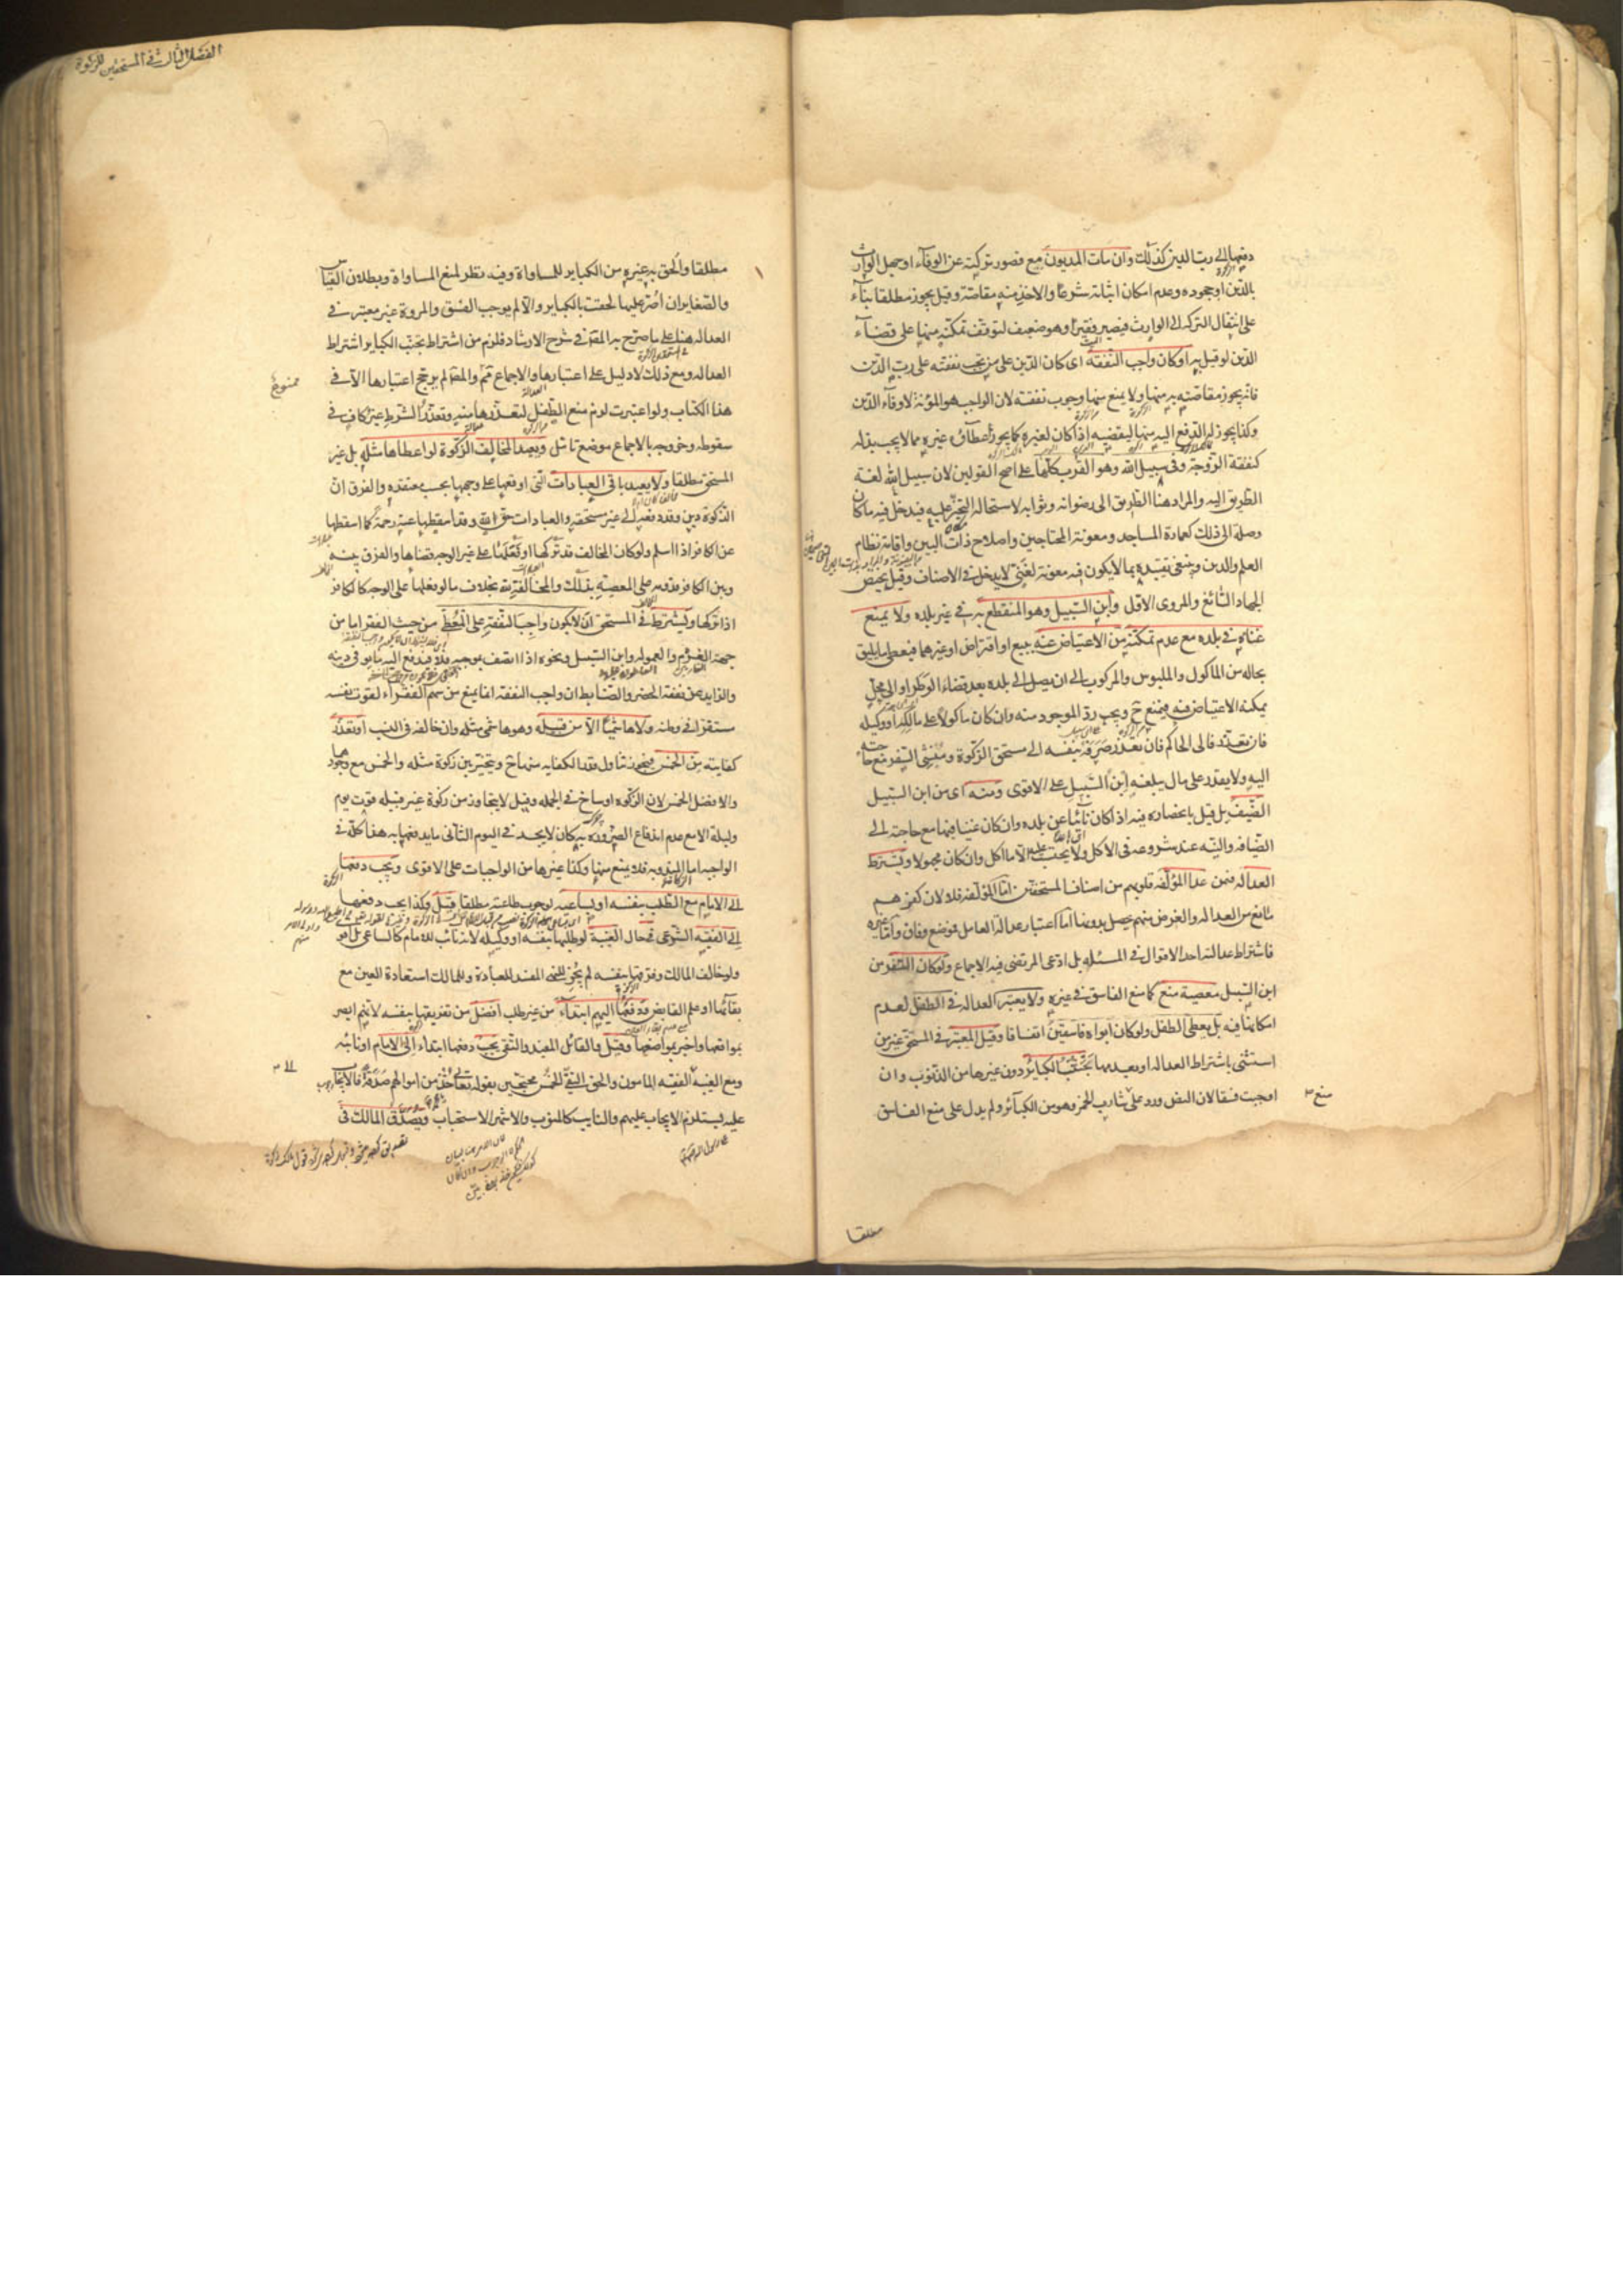 دفعها إلى رب الدين كذلك وان مات المديون مع قصور تركته عن الوفاء او جهل الوارث
بالدين او جحوده وعدم امكان اثباته شرعا والاخذ منه مقاصة وقيل يجوز مطلقا بناء
على انتقال التركة الى الوارث فيصير فقيرا وهو ضعيف لتوقف تمكنه منها على قضاء
الدين لو قيل به او كان واجب النفقة اى كان الدين على من تجب نفقته على رب الدين
فانه يجوز مقاصته به منها ولا يمنع منها وجوب نفقته لان الواجب هو المؤنة لا وفاء الدين
وكذا يجوز له الدفع اليه منها ليقضيه اذا كان لغيره كما يجوز اعطاؤه غيره مما لا يجب بذله
كنفقة الزوجة وفى سبيل الله وهو القرب كلها على اصح القولين لان سبيل الله لغة
الطريق اليه والمراد هنا الطريق الى رضوانه وثوابه لاستحالة التحيز عليه فيدخل فيه ما كان
وصلة الى ذلك كعمارة المساجد ومعونة المحتاجين واصلاح ذات البين واقامة نظام
العلم والدين وينبغى تقييده بما لا يكون فيه معونة لغنى لا يدخل فى الاصناف وقيل يختص
الجهاد السائغ والمروى الاول وابن السبيل وهو المنقطع به فى غير بلده ولا يمنع
غناه فى بلده مع عدم تمكنه من الاعتياض عنه ببيع او اقتراض او غيرهما فيعطى ما يليق
بحاله من الماكول والملبوس والمركوب الى ان يصل الى بلده بعد قضاء الوطر او الى محل
يمكنه الاعتياض فيه فيمنع ح ويجب رد الموجود منه وان كان ماكولا على مالكه او وكيله
فان تعذر فالى الحاكم فان تعذر صرفه بنفسه الى مستحق الزكوة ومنشئ السفر مع حاجته
اليه ولا يقدر على مال يبلغه ابن السبيل على الاقوى ومنه اى من ابن السبيل
الضيف بل قيل بانحصاره فيه اذا كان نائيا عن بلده وان كان غنيا فيها مع حاجته الى
الضيافة والنية عند شروعه فى الاكل ولا يحتسب عليه الا ما اكل وان كان مجهولا ويشترط
العدالة فيمن عدا المؤلفة قلوبهم من اصناف المستحقين اما المؤلفة فلا لان كفرهم
مانع من العدالة والغرض منهم يحصل بدونها اما اعتبار عدالة العامل فموضع وفاق واما غيره
فاشتراط عدالته احد الاقوال فى المسئلة بل ادعى المرتضى فيه الاجماع ولو كان السفر من
ابن السبيل معصية منع كما منع الفاسق فى غيره ولا يعتبر العدالة فى الطفل لعدم
امكانها فيه بل يعطى الطفل ولو كان ابواه فاسقين اتفاقا وقيل المعتبر فى المستحق غير من
استثنى باشتراط العدالة او بعدمها تجنب الكبائر دون غيرها من الذنوب وان
اوجبت فسقا لان النص ورد على شارب الخمر وهو من الكبائر ولم يدل على منع الفاسق
مطلقا
الفصل الثالث فى المستحقين للزكوة
مطلقا والحق به غيره من الكباير للمساواة وفيه نظر لمنع المساواة وبطلان القياس
والصغاير ان اصر عليها لحقت بالكباير والا لم يوجب الفسق والمروة غير معتبرة فى
العدالة هنا على ما صرح به المص فى شرح الارشاد فلزم من اشتراط تجنب الكباير اشتراط
العدالة ومع ذلك لا دليل على اعتبارها والاجماع ثم والمص لم يرجح اعتبارها الا فى
ممنوع
هذا الكتاب ولو اعتبرت لزم منع الطفل لتعذرها منه وتعذر الشرط غير كاف فى
سقوطه وخروجه بالاجماع موضع تامل ويعيد المخالف الزكوة لو اعطاها مثله بل غير
المستحق مطلقا ولا يعيد باقى العبادات التى اوقعها على وجهها بحسب معتقده والفرق ان
الزكوة دين وقد دفعه الى غير مستحقه والعبادات حق الله وقد اسقطها عنه رحمة كما اسقطها
عن الكافر اذا اسلم ولو كان المخالف قد تركها او فعلها على غير الوجه قضاها والفرق بينه
وبين الكافر قدومه على المعصية بذلك والمخالفة لله بخلاف ما لو فعلها على الوجه كالكافر
اذا تركها ويشترط فى المستحق ان لا يكون واجب النفقة على المعطى من حيث الفقر اما من
جهة الغرم والعمولة وابن السبيل ونحوه اذا اتصف بموجبه فلا فيدفع اليه ما يوفى دينه
والزايد عن نفقة الحضر والضابط ان واجب النفقة انما يمنع من سهم الفقراء لقوت نفسه
مستقرا فى وطنه ولا هاشميا الا من قبيله وهو هاشمى مثله وان خالفه فى النسب او تعذر
كفايته من الخمس فيجوز تناول قدر الكفاية منها ح ويتخير بين زكوة مثله والخمس مع وجودهما
والافضل الخمس لان الزكوة اوساخ فى الجملة وقيل لا يتجاوز من زكوة غير قبيله قوت يوم
وليلة الا مع عدم اندفاع الضرورة به كان لا يجد فى اليوم الثانى ما يدفعها به هذا كله فى
الواجبة اما المندوبة فلا يمنع منها وكذا غيرها من الواجبات على الاقوى ويجب دفعها
الى الامام مع الطلب بنفسه او بساعيه لوجوب طاعته مطلقا قيل وكذا يجب دفعها
الى الفقيه الشرعى فى حال الغيبة لو طلبها بنفسه او وكيله لانه نائب للامام كالساعى بل اقوى
ولو خالف المالك وفرقها بنفسه لم يجز للنهى المفسد للعبادة وللمالك استعادة العين مع
بقائها او علم القابض ودفعها اليهم ابتداء من غير طلب افضل من تفريقها بنفسه لانهم ابصر
بمواقعها واخبر بمواضعها وقيل والقائل المفيد والتقى يجب دفعها ابتداء الى الامام او نائبه
ومع الغيبة الفقيه المامون والحق التقى الخمس محتجين بقوله تعالى خذ من اموالهم صدقة فالايجاب
عليه يستلزم الايجاب عليهم والنايب كالمنوب والاشهر الاستحباب ويصدق المالك فى